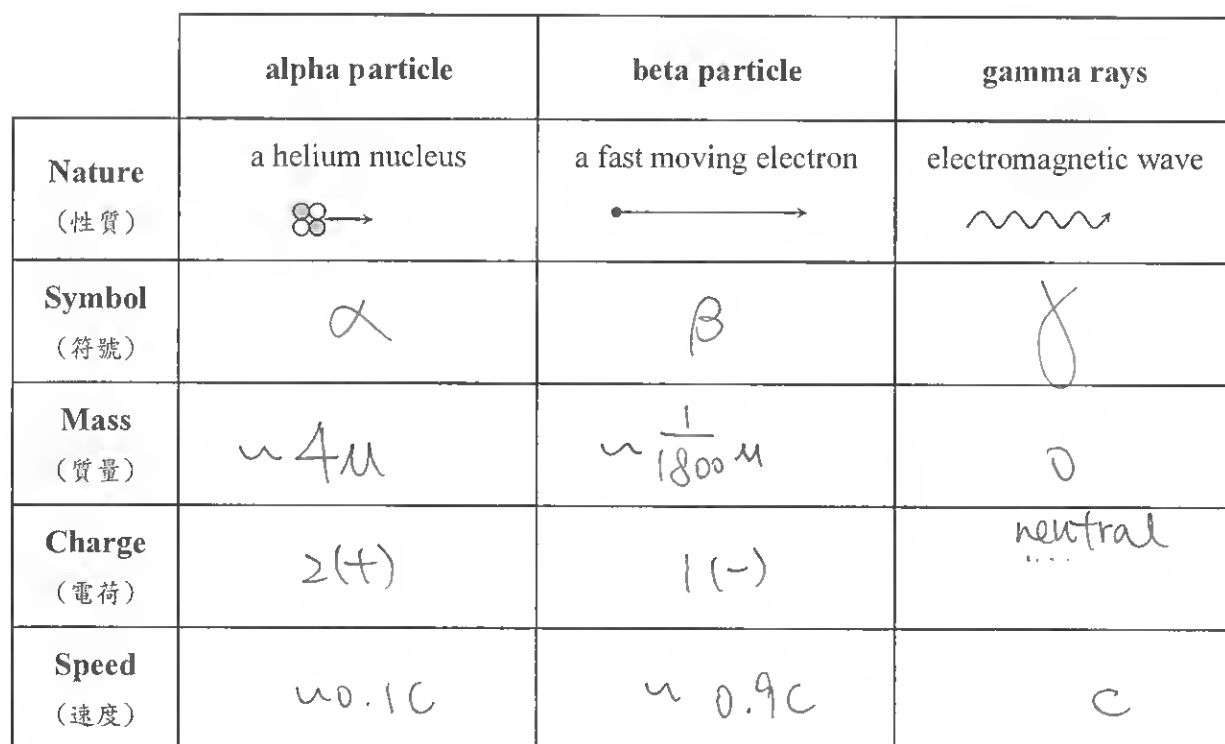 alpha particle beta particle gamma rays
Nature
(性質)
a helium nucleus a fast moving electron electromagnetic wave
Symbol
(符號)
α β γ
Mass
(質量)
~ 4u ~ 1/1800 u 0
Charge
(電荷)
2(+) 1(-) neutral
Speed
(速度)
~0.1C ~ 0.9C C